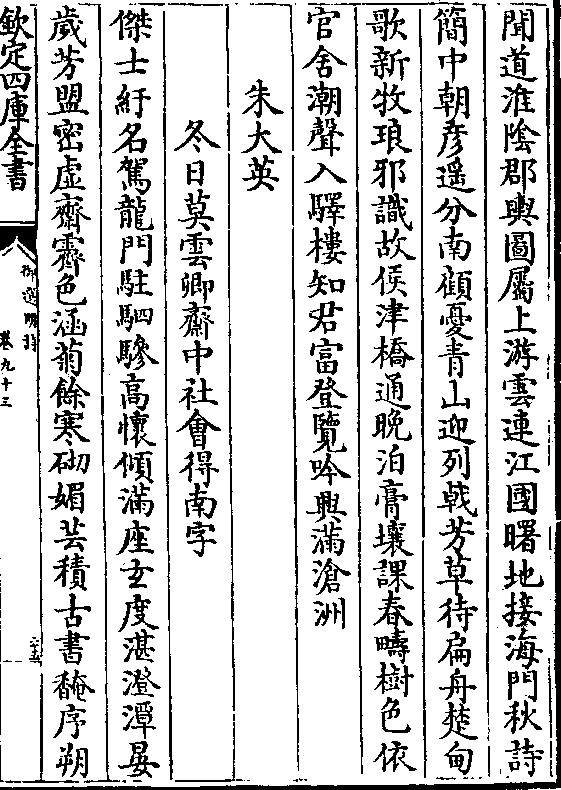 聞道淮隂郡輿圖屬上游雲連江國曙地接海門秋詩
簡中朝彦遥分南顧憂青山迎列㦸芳草待扁舟楚甸
歌新牧琅邪識故侯津橋通晚泊膏壤課春疇樹色依
官舍潮聲入驛樓知君富登覽吟興滿滄洲
朱大英
冬日莫雲卿齋中社會得南字
傑士紆名駕龍門駐駟驂高懷傾滿座玄度湛澄潭晏
歲芳盟密虚齋霽色涵菊餘寒砌媚芸積古書馣序朔
欽定四庫全書
御選明詩
卷九十三